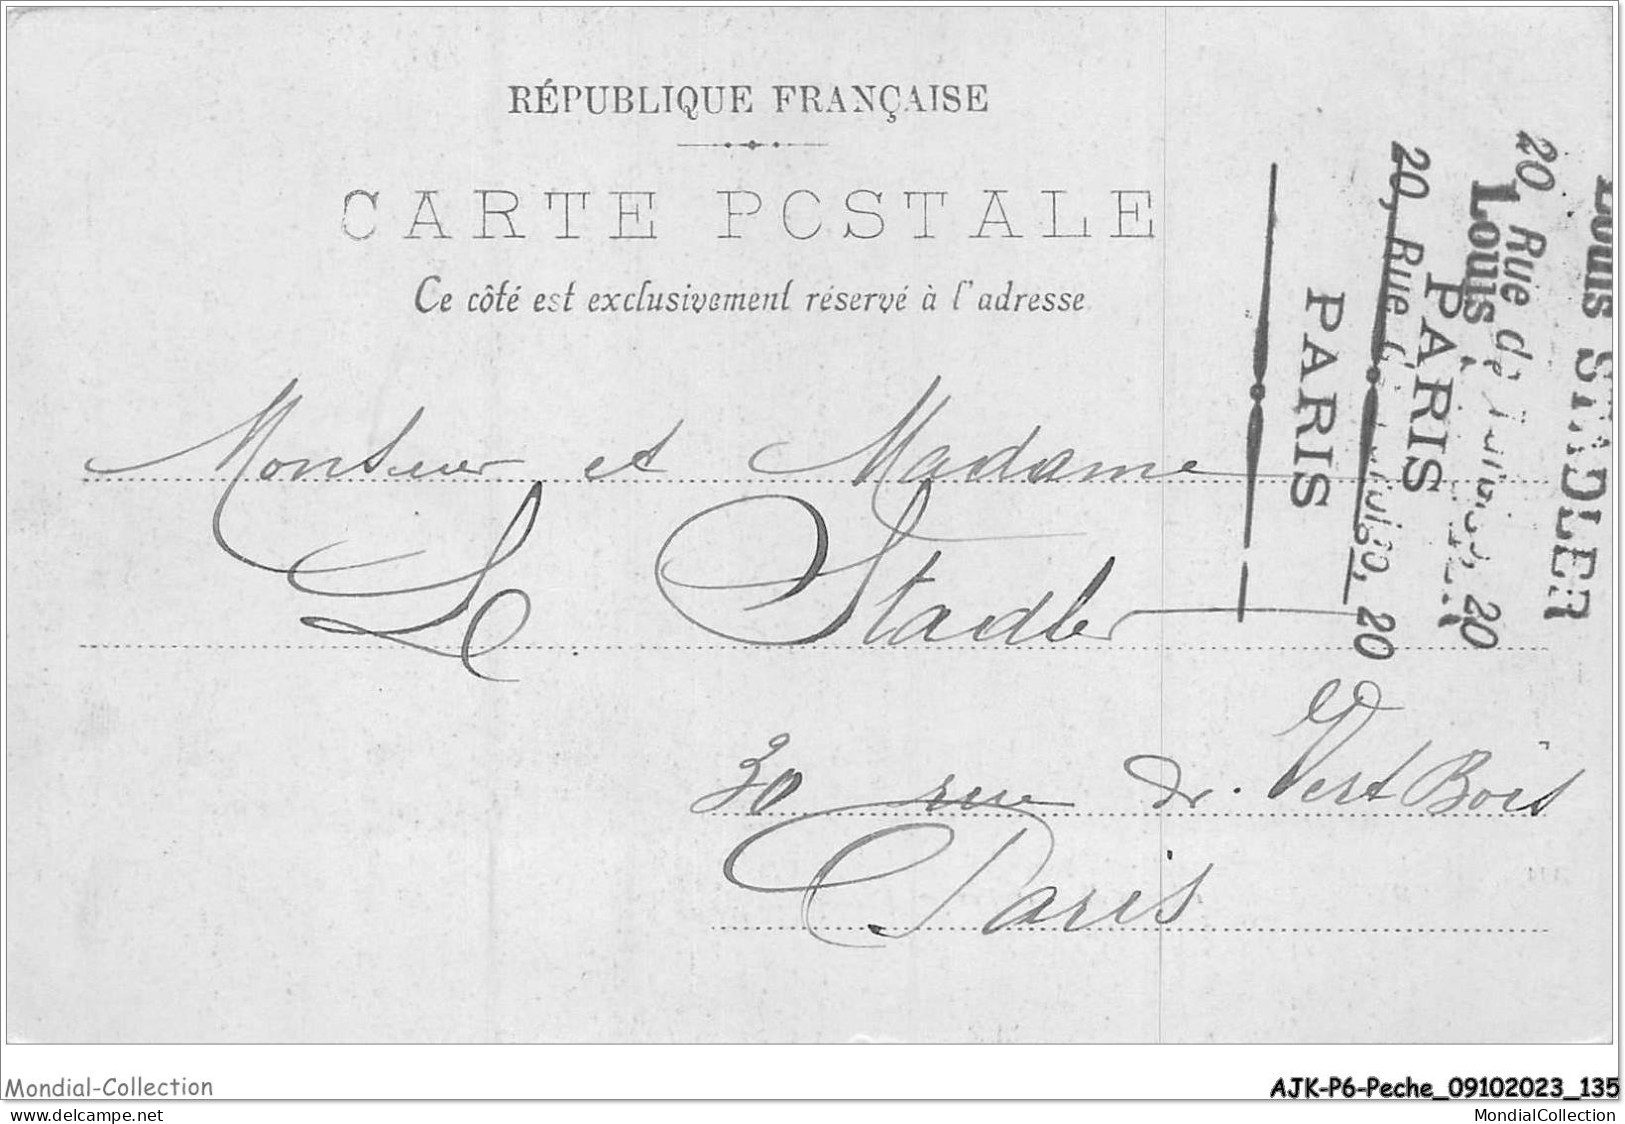 RÉPUBLIQUE FRANÇAISE
CARTE POSTALE
Ce côté est exclusivement réservé à l'adresse
Monsieur et Madame
L. Stadler
30 rue du Vert Bois
Paris
Louis STADLER
20 Rue de
Louis
PARIS
20, Rue
20
PARIS
Mondial-Collection
AJK-P6-Peche_09102023_135
www.delcampe.net
MondialCollection